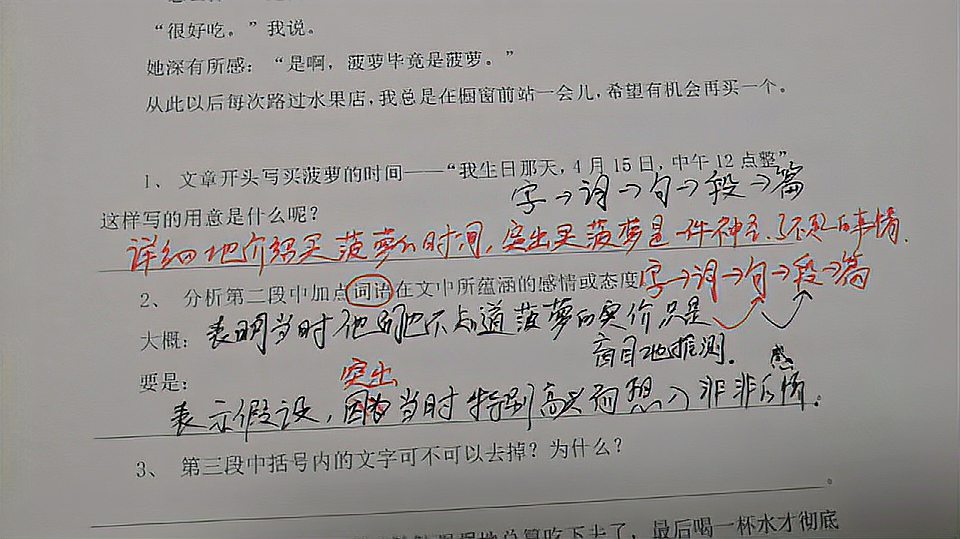 “很好吃。”我说。
她深有所感：“是啊，菠萝毕竟是菠萝。”
从此以后每次路过水果店，我总是在橱窗前站一会儿，希望有机会再买一个。
1、文章开头写买菠萝的时间——“我生日那天，4月15日，中午12点整”
字→词→句→段→篇
这样写的用意是什么呢？
详细地介绍买菠萝的时间，突出买菠萝是一件神圣、了不起的事情.
2、分析第二段中加点词语在文中所蕴涵的感情或态度
字→词→句→段→篇
大概：表明当时他们也不知道菠萝的实价只是
盲目地推测.
要是：
突出
感
表示假设，因为当时特别高兴而想入非非的情.
3、第三段中括号内的文字可不可以去掉？为什么？
地总算吃下去了，最后喝一杯水才彻底